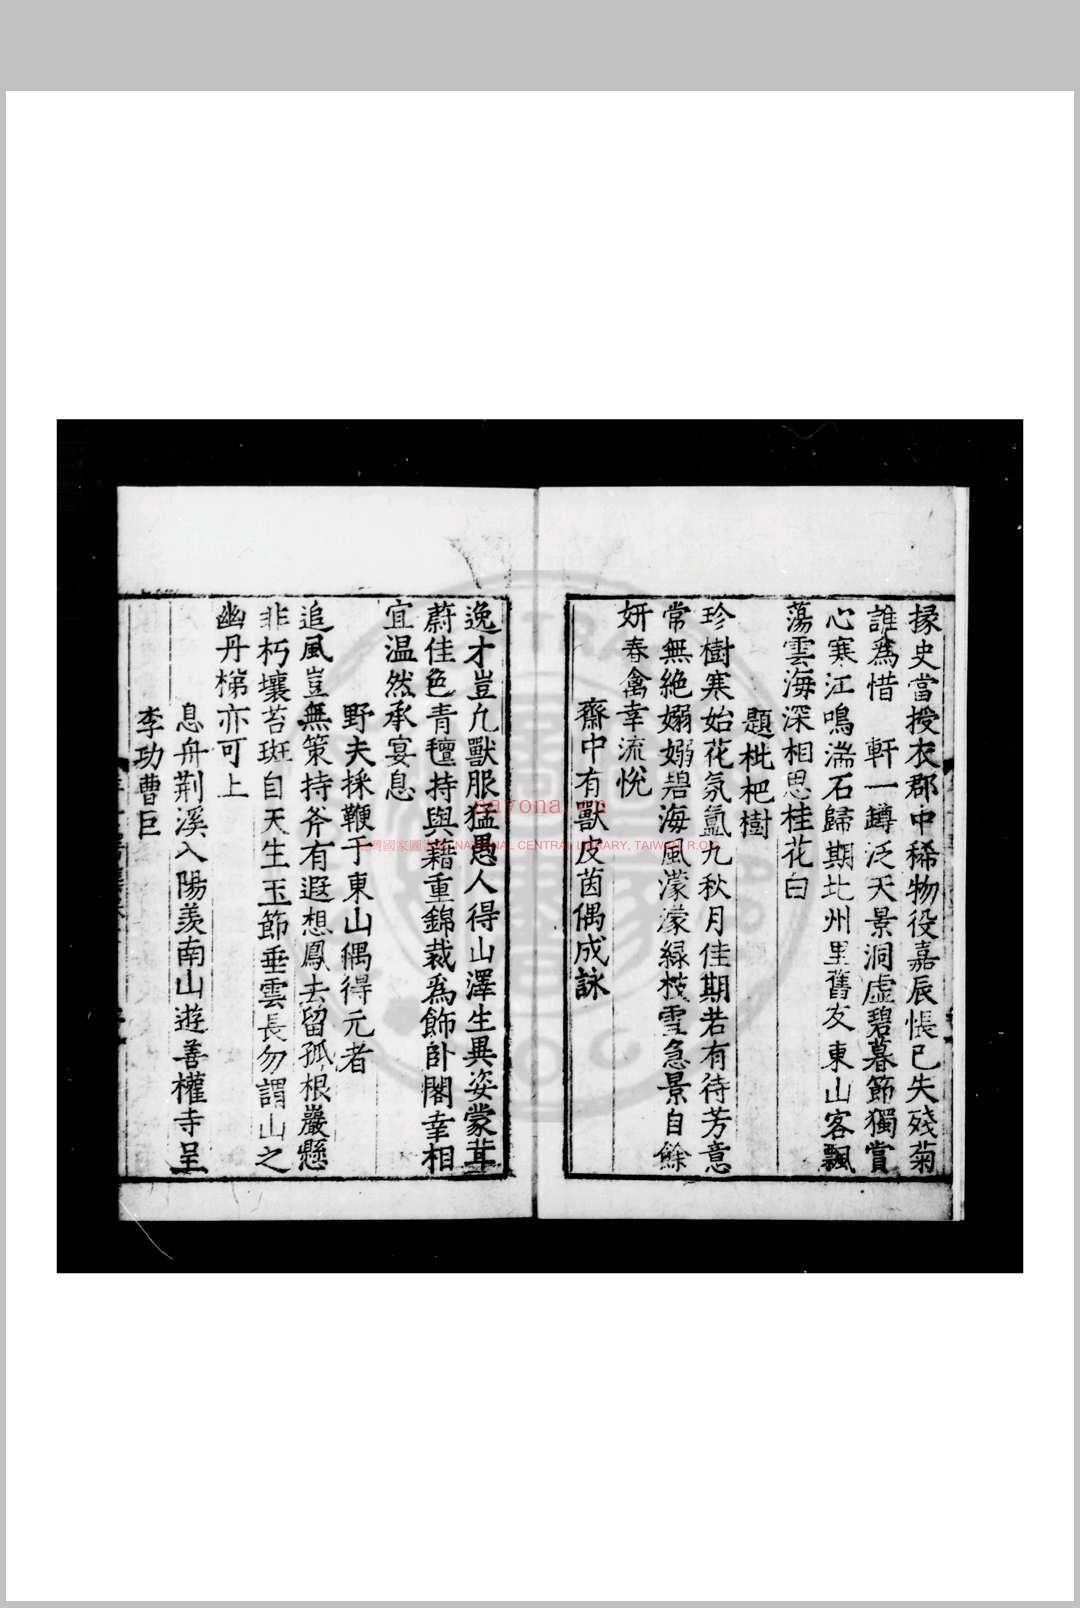 掾史當授衣郡中稀物役嘉辰悵已失殘菊
誰爲惜 軒一罇泛天景洞虛碧暮節獨賞
心寒江鳴湍石歸期北州里舊友東山客飄
蕩雲海深相思桂花白
題枇杷樹
珍樹寒始花氛氳九秋月佳期若有待芳意
常無絶嫋嫋碧海風濛濛緑枝雪急景自餘
妍春禽幸流悅
齋中有獸皮茵偶成詠
逸才豈凢獸服猛愚人得山澤生異姿蒙茸
蔚佳色青氊持與藉重錦裁爲飾卧閣幸相
宜温然承宴息
野夫採鞭于東山偶得元者
追風豈無策持斧有遐想鳳去留孤根巖懸
非朽壤苔斑自天生玉節垂雲長勿謂山之
幽丹梯亦可上
息舟荆溪入陽羨南山遊善權寺呈
李功曹巨
nayona.cn
國家圖 NATIONAL CENTRAL LIBRARY, TAIWAN R.O.C